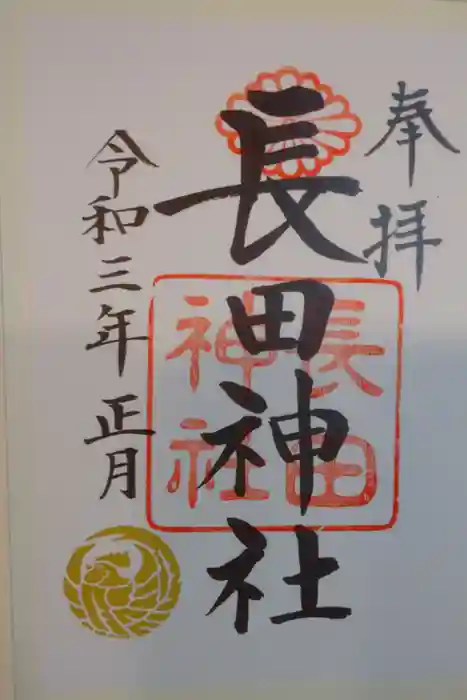 奉拝
長田神社
長田
神社
令和三年 正月